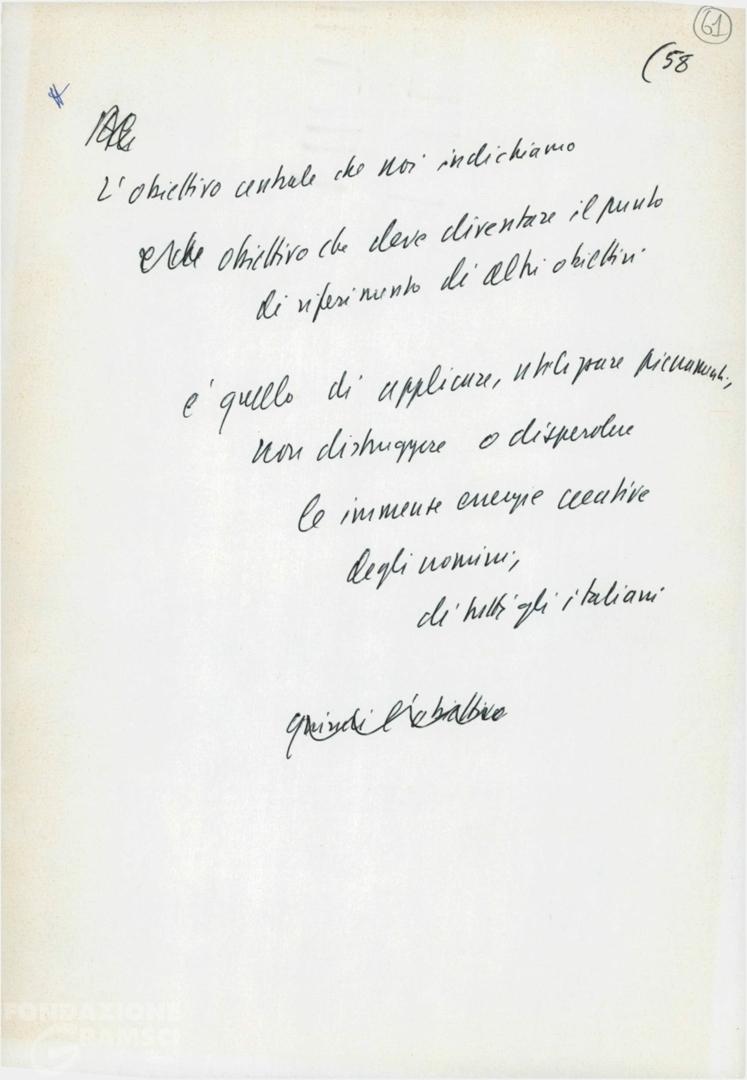 61
(58
L'obiettivo centrale che noi indichiamo
obiettivo che deve diventare il punto
di riferimento di altri obiettivi
è quello di applicare, utilizzare pienamente,
non distruggere o disperdere
le immense energie creative
degli uomini,
di tutti gli italiani
quindi l'obiettivo
FONDAZIONE
GRAMSCI